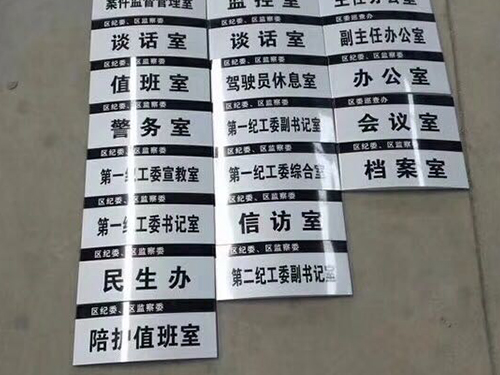 案件监督管理室
区纪委、区监察委
谈话室
区纪委、区监察委
值班室
区纪委、区监察委
警务室
区纪委、区监察委
第一纪工委宣教室
区纪委、区监察委
第一纪工委书记室
区纪委、区监察委
民生办
区纪委、区监察委
陪护值班室
监控室
区纪委、区监察委
谈话室
区纪委、区监察委
驾驶员休息室
区纪委、区监察委
第一纪工委副书记室
区纪委、区监察委
第一纪工委综合室
区纪委、区监察委
信访室
区纪委、区监察委
第二纪工委副书记室
主任办公室
区委巡查办
副主任办公室
区委巡查办
办公室
区委巡查办
会议室
区纪委、区监察委
档案室